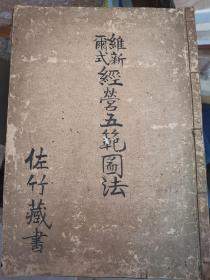 維新
爾式
經營五範圖法
佐竹藏書